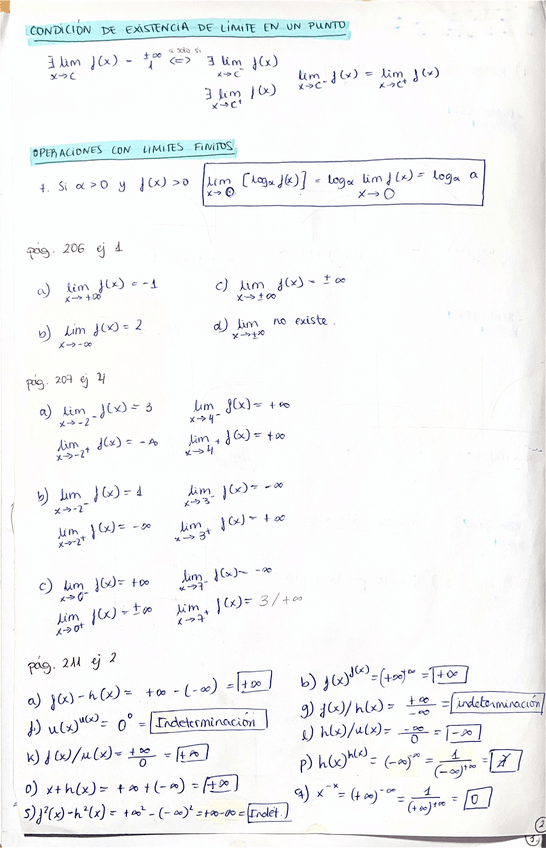 CONDICIÓN DE EXISTENCIA DE LÍMITE EN UN PUNTO
∃ lim x→c f(x) = ±∞ 1 si solo si <=> ∃ lim x→c⁻ f(x)
∃ lim x→c⁺ f(x) lim x→c⁻ f(x) = lim x→c⁺ f(x)
OPERACIONES CON LIMITES FINITOS
7. Si α>0 y f(x)>0 lim x→0 [logα f(x)] = logα lim x→0 f(x) = logα a
pág. 206 ej 1
a) lim x→+∞ f(x) = -1 c) lim x→±∞ f(x) = ±∞
b) lim x→-∞ f(x) = 2 d) lim x→±∞ no existe.
pág. 207 ej 4
a) lim x→-2⁻ f(x) = 3 lim x→4⁻ f(x) = +∞
lim x→-2⁺ f(x) = -∞ lim x→4⁺ f(x) = +∞
b) lim x→-2⁻ f(x) = 1 lim x→3⁻ f(x) = -∞
lim x→-2⁺ f(x) = -∞ lim x→3⁺ f(x) = +∞
c) lim x→0⁻ f(x) = +∞ lim x→7⁻ f(x) = -∞
lim x→0⁺ f(x) = ±∞ lim x→7⁺ f(x) = 3/+∞
pág. 211 ej 2
a) f(x) - h(x) = +∞ - (-∞) = +∞ b) f(x)^f(x) = (+∞)^+∞ = +∞
f) u(x)^u(x) = 0⁰ = Indeterminación g) f(x)/h(x) = +∞/-∞ = indeterminación
k) f(x)/u(x) = +∞/0 = +∞ l) h(x)/u(x) = -∞/0 = -∞
o) x + h(x) = +∞ + (-∞) = +∞ p) h(x)^h(x) = (-∞)^-∞ = 1/(-∞)^+∞ = ∄
s) f²(x) - h²(x) = +∞² - (-∞)² = +∞-∞ = Indet. q) x^-x = (+∞)^-∞ = 1/(+∞)^+∞ = 0